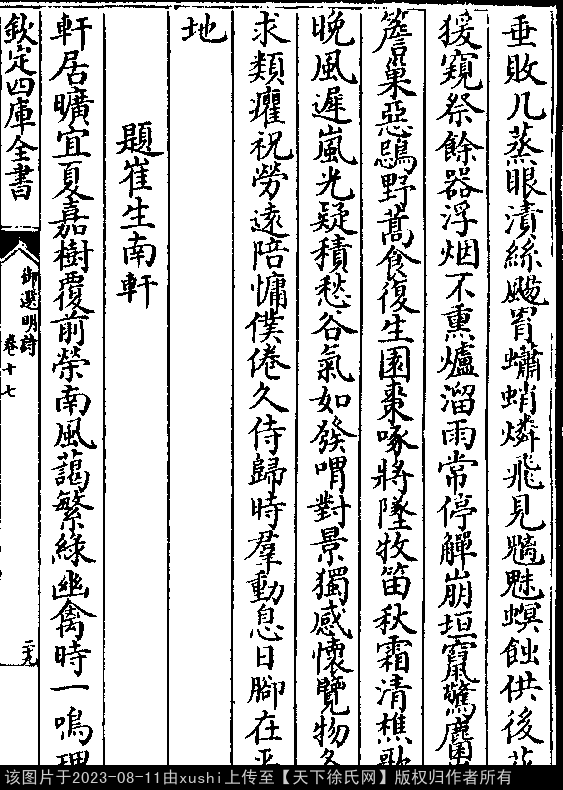 垂敗几蒸眼漬絲颺罥蠨蛸燐飛見魑魅螟蝕供後
猨窺祭餘器浮烟不熏爐溜雨常停觶崩垣竄驚麏
簷巢惡鴞野蒿食復生園棗啄將墜牧笛秋霜清樵歌
晚風遲嵐光疑積愁谷氣如發喟對景獨感懷覽物
求類癯祝勞遠陪慵僕倦久侍歸時羣動息日腳在平
地
題崔生南軒
軒居曠宜夏嘉樹覆前榮南風藹繁綠幽禽時一鳴理
欽定四庫全書
御選明詩
卷十七
二九
该图片于2023-08-11由xushi上传至【天下徐氏网】版权归作者所有